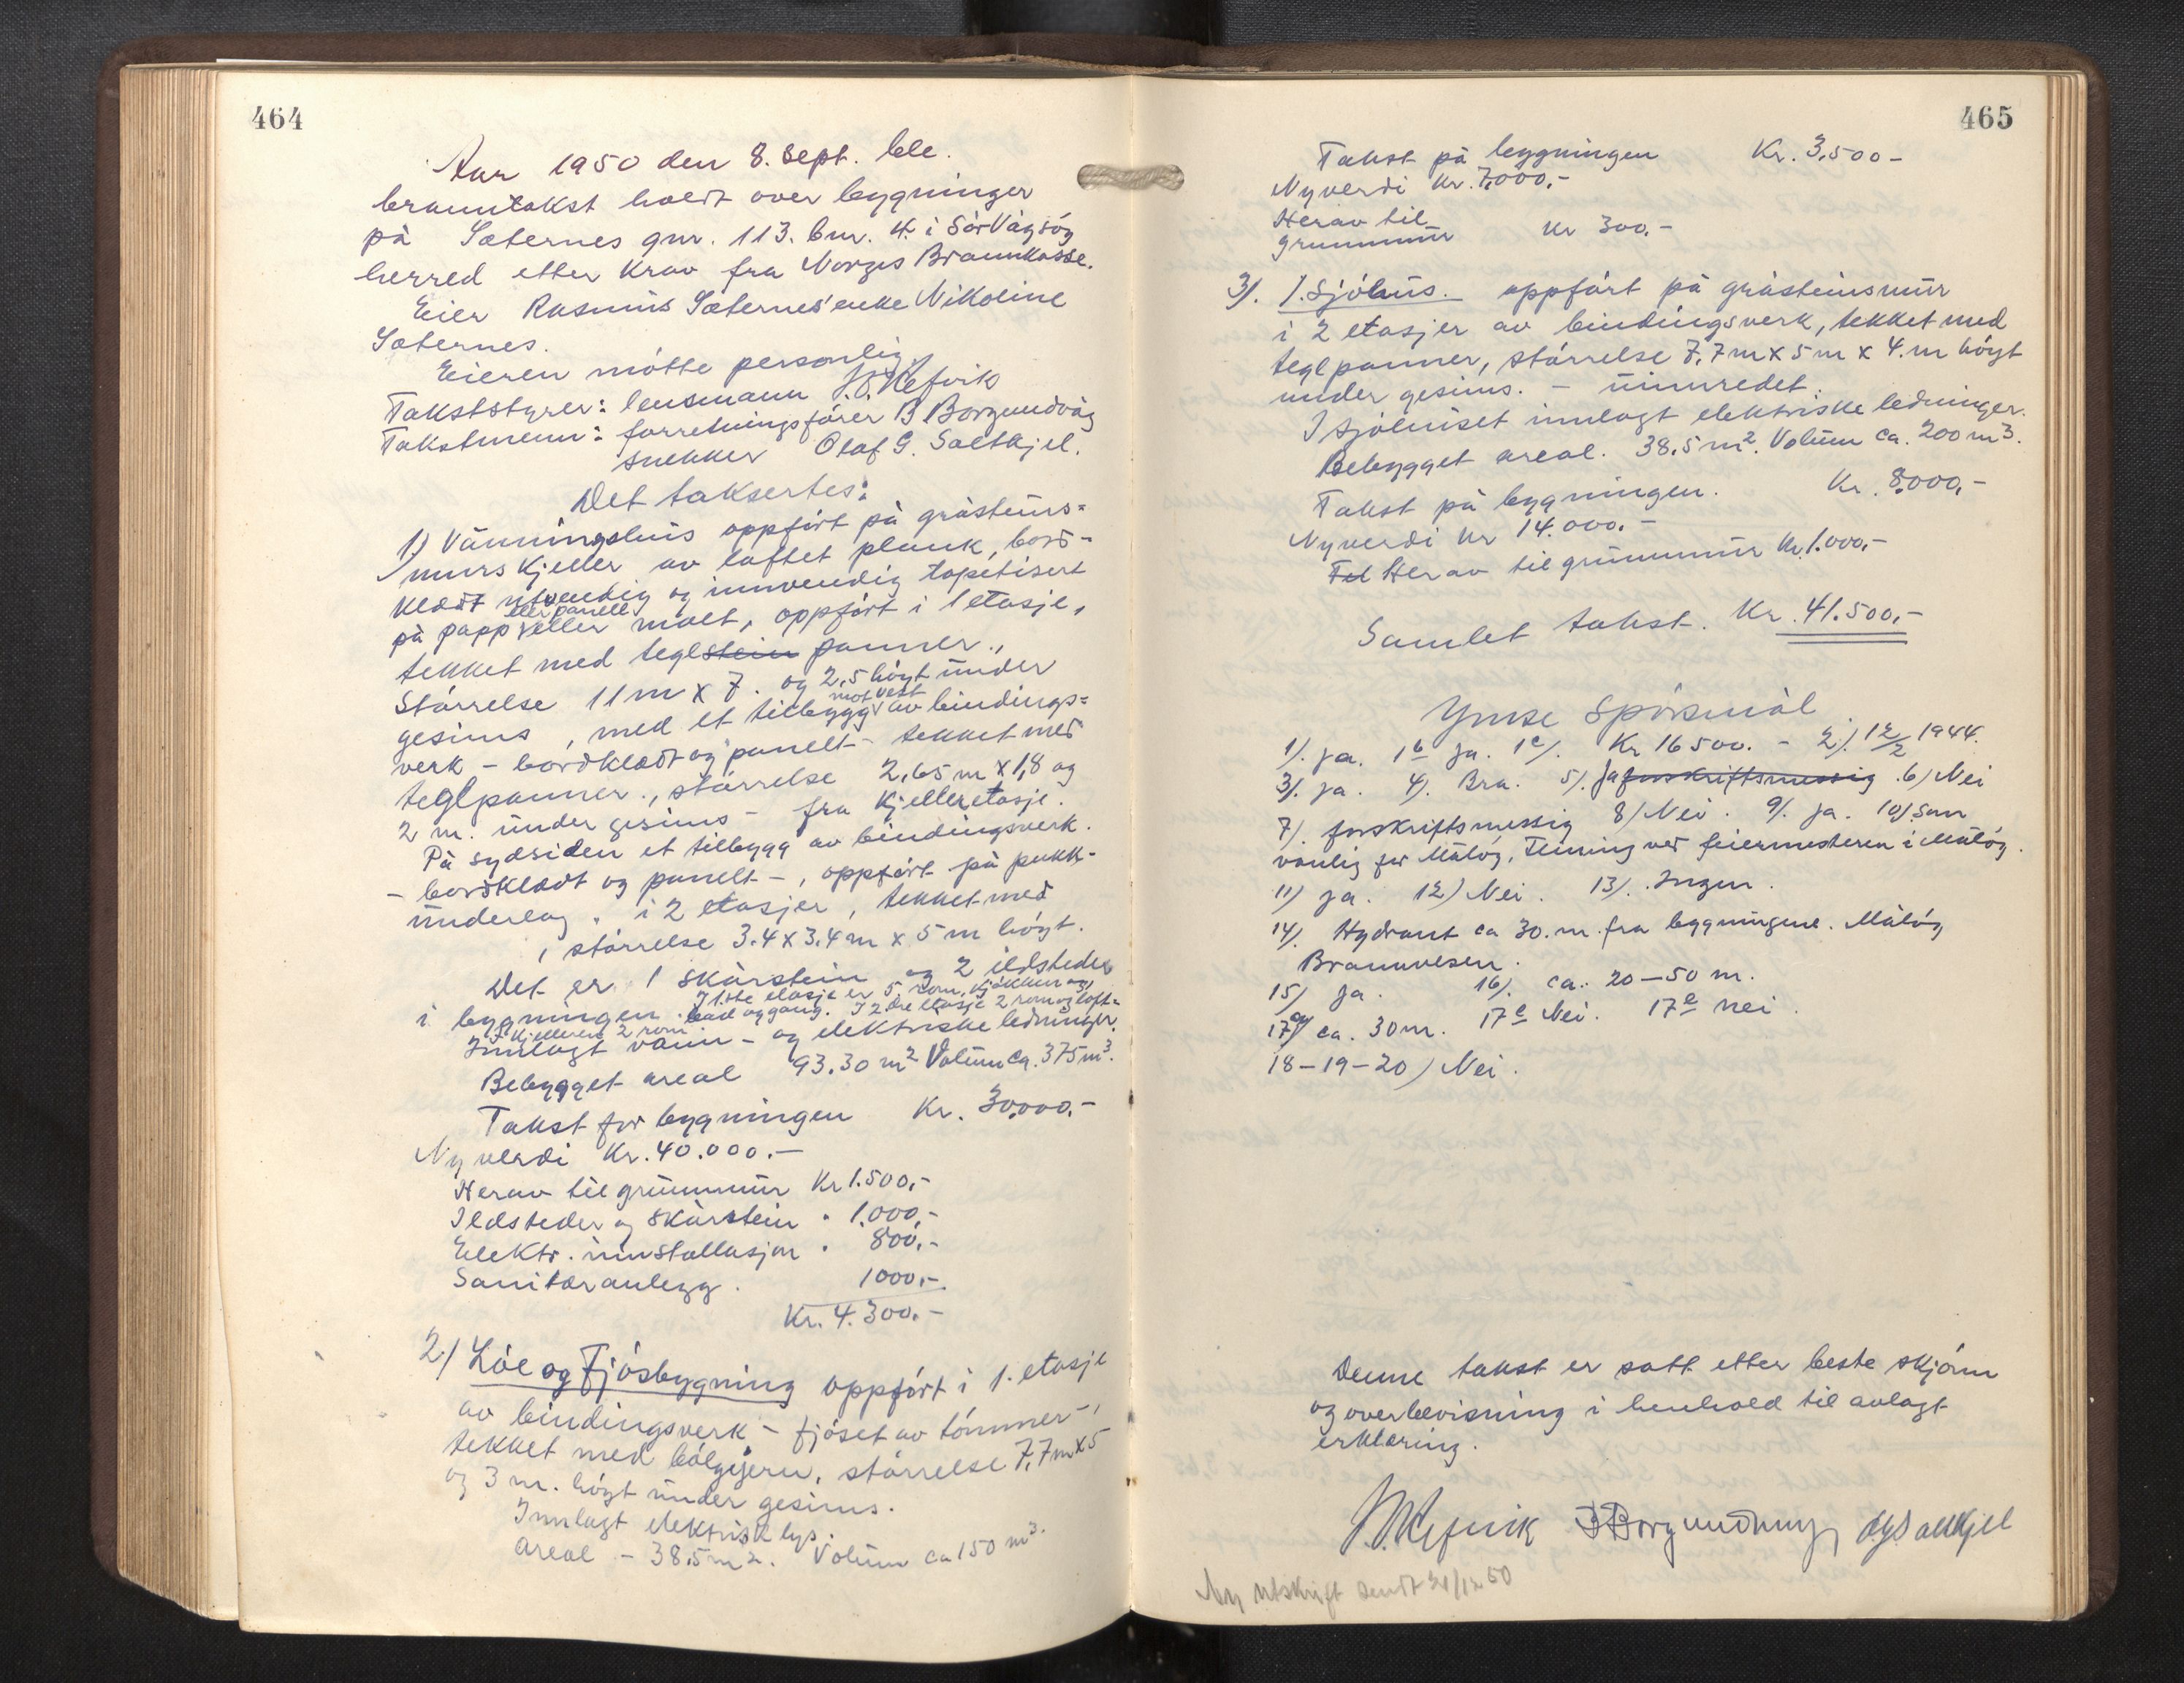 464
Aar 1950 den 8. Sept. ble
branntakst holdt over bygninger
på Sæternes gnr. 113. bnr. 4. i Sør Vågsøy
herred etter krav fra Norges Brannkasse.
Eier Rasmus Sæternes' enke Nikoline
Sæternes.
Eieren møtte personlig.
Takststyrer: lensmann J. J. Refvik
Takstmenn: forretningsfører B Borgundvåg
snekker Olaf G. Saltkjel.
Det taksertes:
1) Vånningshus oppført på gråsteins=
murs kjeller av laftet plank, bord-
kledt utvendig og innvendig tapetisert
på papp eller panell eller malt, oppført i 1 etasje,
tekket med teglstein panner.,
Størrelse 11 m x 7. og 2,5 høyt under
gesims, med et tilbygg mot vest av bindings=
verk – bordkledt og panelt – tekket med
teglpanner., størrelse 2,65 m x 1,8 og
2 m. under gesims – fra kjelleretasje.
På sydsiden et tilbygg av bindingsverk.
– bordkledt og panelt –, oppført på pukk-
underlag. i 2 etasjer, tekket med
, størrelse 3.4 x 3.4 m x 5 m høyt.
Det er 1 skorstein og 2 ildsteder
i bygningen. I 1ste etasje er 5 rom, kjøkken og
bad og gang. I 2dre etasje 2 rom og loft=
I kjelleren 2 rom
Innlagt vann – og elektriske ledninger.
Bebygget areal 93.30 m2 Volum ca. 375 m3.
Takst for bygningen Kr. 30.000.-
Nyverdi Kr. 40.000.–
Herav til grunnmur Kr 1.500,-
Ildsteder og skorstein " 1.000,-
Elektr. innstallasjon " 800,-
Sanitæranlegg. 1000,-
Kr. 4.300.-
2.) Løe og Fjøsbygning oppført i 1. etasje
av bindingsverk – fjøset av tømmer –,
tekket med bølgejern, størrelse 7,7 m x 5
og 3 m. høyt under gesims.
Innlagt elektrisk lys.
Areal – 38,5 m2. Volum ca 150 m3.
465
Takst på bygningen Kr. 3.500-
Nyverdi kr. 7.000,-
Herav til
grunnmur kr 300.-
3). 1. Sjøhus. oppført på gråsteinsmur
i 2 etasjer av bindingsverk, tekket med
teglpanner, størrelse 7,7 m x 5 m x 4. m høyt
under gesims. – uinnredet.
I sjøhuset innlagt elektriske ledninger.
Bebygget areal. 38.5 m2. Volum ca. 200 m3.
Takst på bygningen. Kr. 8.000,-
Nyverdi kr 14.000.-
Tel Herav til grunnmur kr. 1.000,-
Samlet takst. Kr. 41.500,-
Ymse Spørsmål
1). ja. 1b ja. 1c). Kr 16500. – 2.) 12/2 1944.
3). ja. 4). Bra. 5). Ja forskriftsmessig. 6) Nei
7). forskriftsmessig 8) Nei. 9). ja. 10) Som
vanlig for Måløy, Feining ved feiermesteren i Måløy.
11) ja. 12) Nei. 13). Ingen.
14). Hydrant ca 30. m. fra bygningene. Måløy
Brannvesen.
15) ja. 16). ca. 20–50 m.
17a) ca. 30 m. 17c Nei. 17e nei.
18–19–20) Nei.
Denne takst er satt etter beste skjønn
og overbevisning i henhold til avlagt
erklæring.
J. J. Refvik B Borgundvåg O G Saltkjel
Ny utskrift sendt 21/12 50